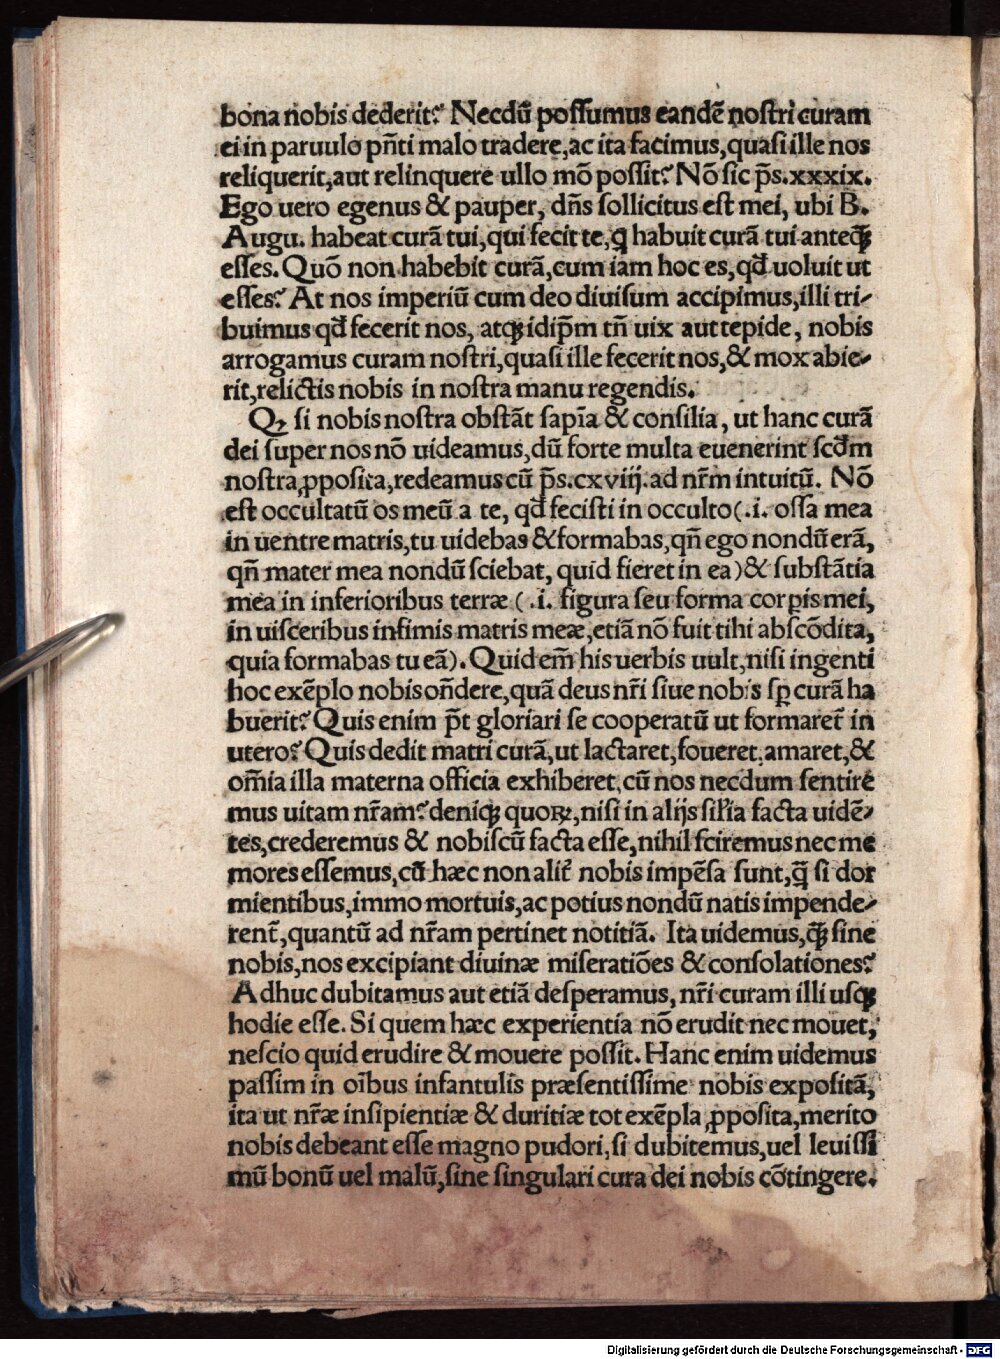 bona nobis dederit? Necdū possumus eandē nostri curam
ei in paruulo pñti malo tradere, ac ita facimus, quasi ille nos
reliquerit, aut relinquere ullo mō possit? Nō sic p̄s. xxxix.
Ego uero egenus & pauper, dñs sollicitus est mei, ubi B.
Augu. habeat curā tui, qui fecit te, q̄ habuit curā tui anteq̄ꝫ
esses. Quō non habebit curā, cum iam hoc es, qđ uoluit ut
esses? At nos imperiū cum deo diuisum accipimus, illi tri⸗
buimus qđ fecerit nos, atqꝫ idip̄m tñ uix aut tepide, nobis
arrogamus curam nostri, quasi ille fecerit nos, & mox abie⸗
rit, relictis nobis in nostra manu regendis.
Qꝫ si nobis nostra obstāt sapīa & consilia, ut hanc curā
dei super nos nō uideamus, dū forte multa euenerint scđm
nostra ꝓposita, redeamus cū p̄s. cxviij. ad nr̄m intuitū. Nō
est occultatū os meū a te, qđ fecisti in occulto (.i. ossa mea
in uentre matris, tu uidebas & formabas, qñ ego nondū erā,
qñ mater mea nondū sciebat, quid fieret in ea) & substātia
mea in inferioribus terræ (.i. figura seu forma corꝑis mei,
in uisceribus infimis matris meæ, etiā nō fuit tihi abscōdita,
quia formabas tu eā). Quid em̄ his uerbis uult, nisi ingenti
hoc exēplo nobis oñdere, quā deus nr̄i siue nobis sꝑ curā ha
buerit? Quis enim p̄t gloriari se cooperatū ut formaret̄ in
utero? Quis dedit matri curā, ut lactaret, foueret, amaret, &
om̄ia illa materna officia exhiberet, cū nos necdum sentire
mus uitam nr̄am? deniqꝫ quoꝝ, nisi in alijs sil'ia facta uidē⸗
tes, crederemus & nobiscū facta esse, nihil sciremus nec me
mores essemus, cū hæc non alit̄ nobis impēsa sunt, q̄ si dor
mientibus, immo mortuis, ac potius nondū natis impende⸗
rent̄, quantū ad nr̄am pertinet notitiā. Ita uidemus, q̄ꝫ sine
nobis, nos excipiant diuinæ miseratiōes & consolationes?
Adhuc dubitamus aut etiā desperamus, nr̄i curam illi usqꝫ
hodie esse. Si quem hæc experientia nō erudit nec mouet,
nescio quid erudire & mouere possit. Hanc enim uidemus
passim in oībus infantulis præsentissime nobis expositā,
ita ut nr̄æ insipientiæ & duritiæ tot exēpla ꝓposita, merito
nobis debeant esse magno pudori, si dubitemus, uel leuissi
mū bonū uel malū, sine singulari cura dei nobis cōtingere.
Digitalisierung gefördert durch die Deutsche Forschungsgemeinschaft - DFG